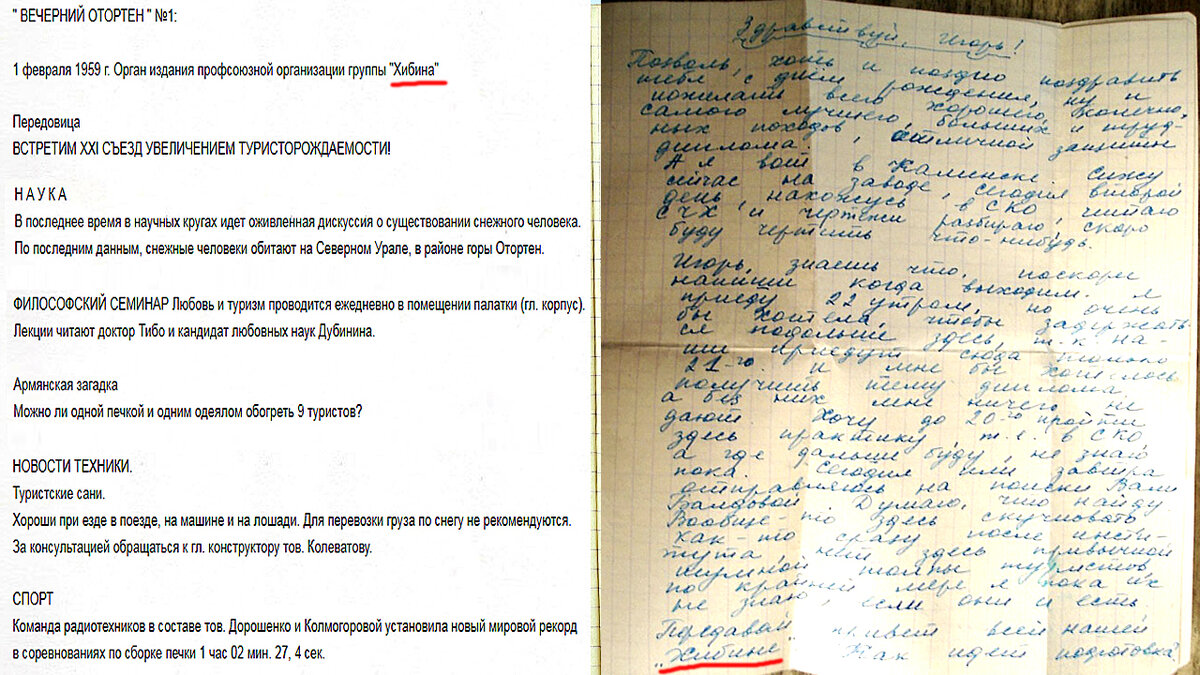 " ВЕЧЕРНИЙ ОТОРТЕН " №1:
1 февраля 1959 г. Орган издания профсоюзной организации группы "Хибина"
Передовица
ВСТРЕТИМ XXI СЪЕЗД УВЕЛИЧЕНИЕМ ТУРИСТОРОЖДАЕМОСТИ!
Н А У К А
В последнее время в научных кругах идет оживленная дискуссия о существовании снежного человека.
По последним данным, снежные человеки обитают на Северном Урале, в районе горы Отортен.
ФИЛОСОФСКИЙ СЕМИНАР Любовь и туризм проводится ежедневно в помещении палатки (гл. корпус).
Лекции читают доктор Тибо и кандидат любовных наук Дубинина.
Армянская загадка
Можно ли одной печкой и одним одеялом обогреть 9 туристов?
НОВОСТИ ТЕХНИКИ.
Туристские сани.
Хороши при езде в поезде, на машине и на лошади. Для перевозки груза по снегу не рекомендуются.
За консультацией обращаться к гл. конструктору тов. Колеватову.
СПОРТ
Команда радиотехников в составе тов. Дорошенко и Колмогоровой установила новый мировой рекорд
в соревнованиях по сборке печки 1 час 02 мин. 27, 4 сек.
Здравствуй, Игорь!
Позволь, хоть и поздно поздравить
тебя с днём рождения, ну и
пожелать всего хорошего, конечно,
самого лучшего, больших и труд-
ных походов, отличной защиты
диплома.
А я вот в Каменске сижу
сейчас на заводе, сегодня второй
день, нахожусь в СКО, читаю
СЧХ и чертежи разбираю, скоро
буду чертить что-нибудь.
Игорь, знаешь что, поскорее
напиши когда выходим. Я
приеду 22 утром, но очень
бы хотела, чтобы задержать-
ся подольше здесь, т.к. на-
ши приедут сюда только
21-го. и мне бы хотелось
получить тему диплома,
а без них мне ничего не
дают. Хочу до 20-го пройти
здесь практику, т.е. в СКО,
а где дальше буду, не знаю
пока. Сегодня или завтра
отправляюсь на поиски Вали
Балдовой. Думаю, что найду
Вообще-то здесь скучновато
как-то сразу после инсти-
тута, нет здесь привычной
шумной толпы туристов,
по крайней мере я пока их
не знаю, если они и есть.
Передавай привет всей нашей
"Хибине". Как идет подготовка?